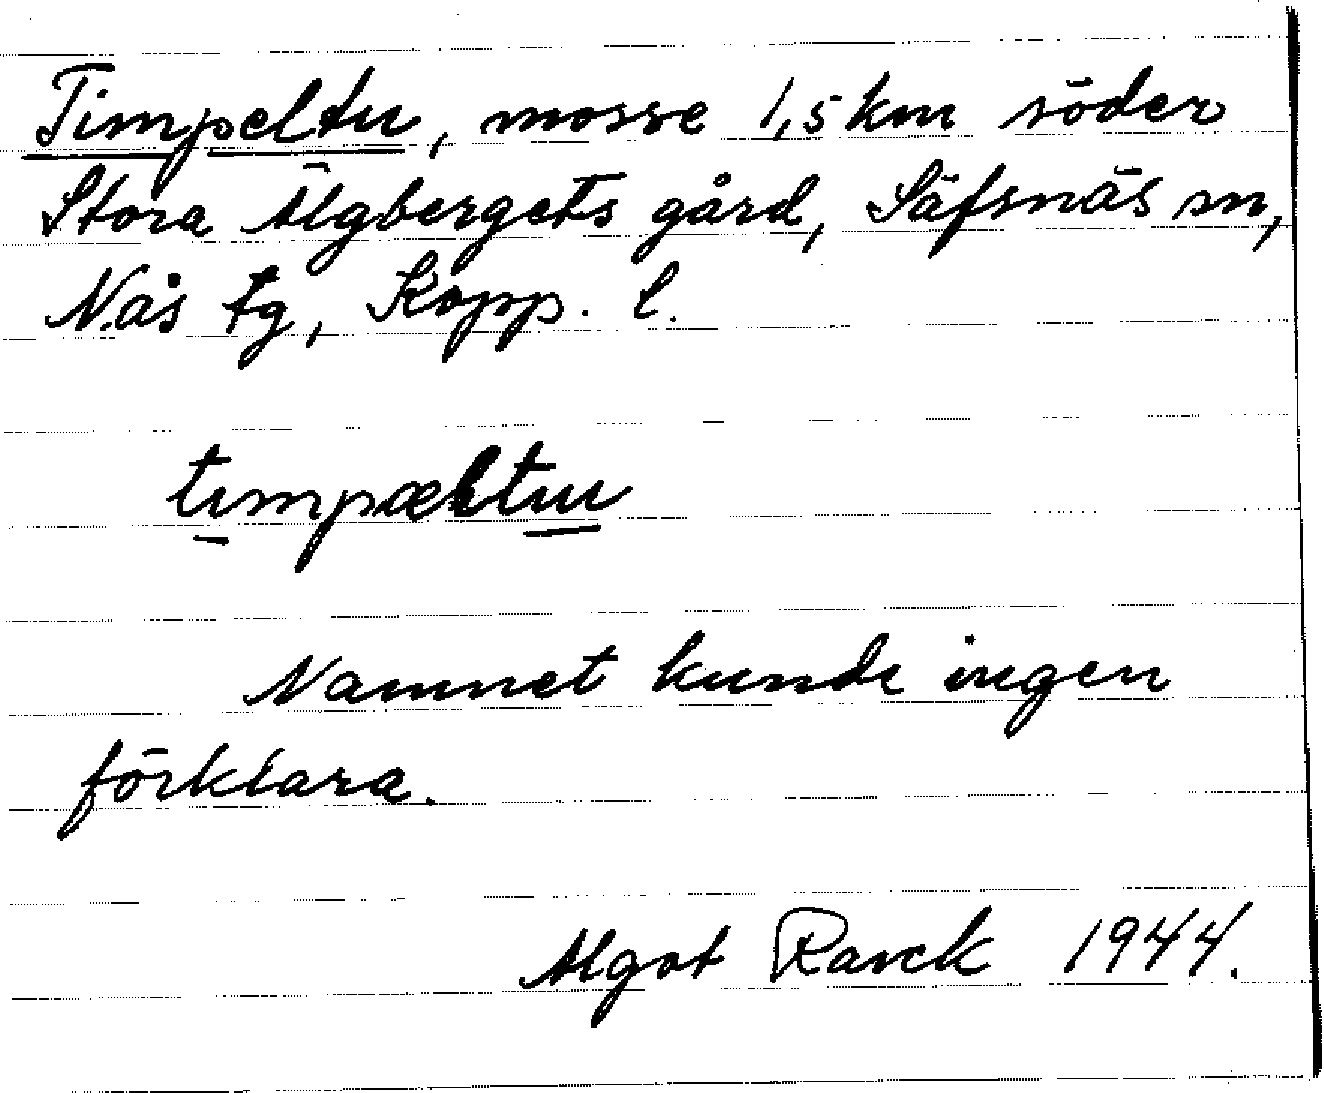 Timpeltu, mosse 1,5 km söder
Stora Älgbergets gård, Säfsnäs sn,
Nås tg, Kopp. l.
timpæltuu
Namnet kunde ingen
förklara.
Algot Ranck 1944.